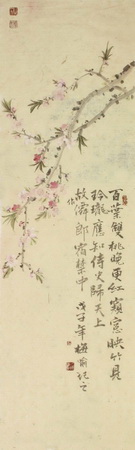 百葉雙桃晚更紅窺窓映竹見
玲瓏應知侍史歸天上
故郎宿禁中 戊子年